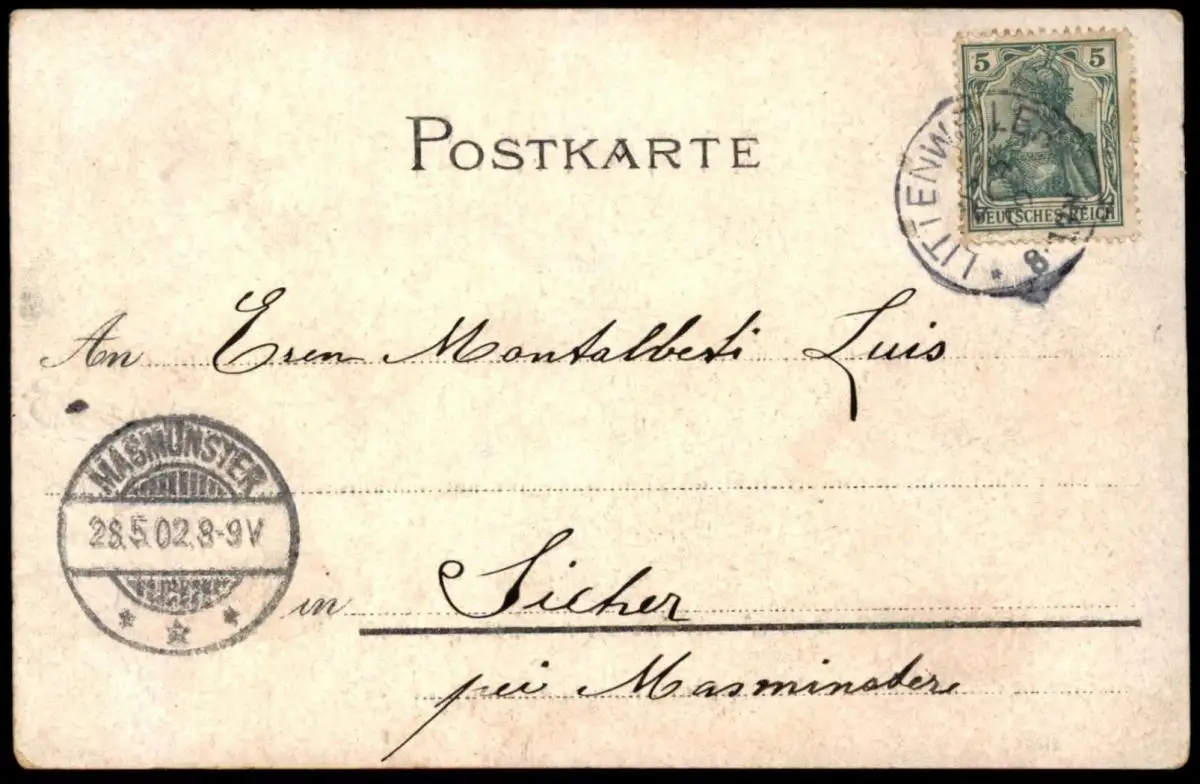 POSTKARTE
5 5
DEUTSCHES REICH
LITTENW
8.
An Eren Montalbeti Luis
MASMÜNSTER
28.5.02.8-9V
in Sicher
pei Masminstere